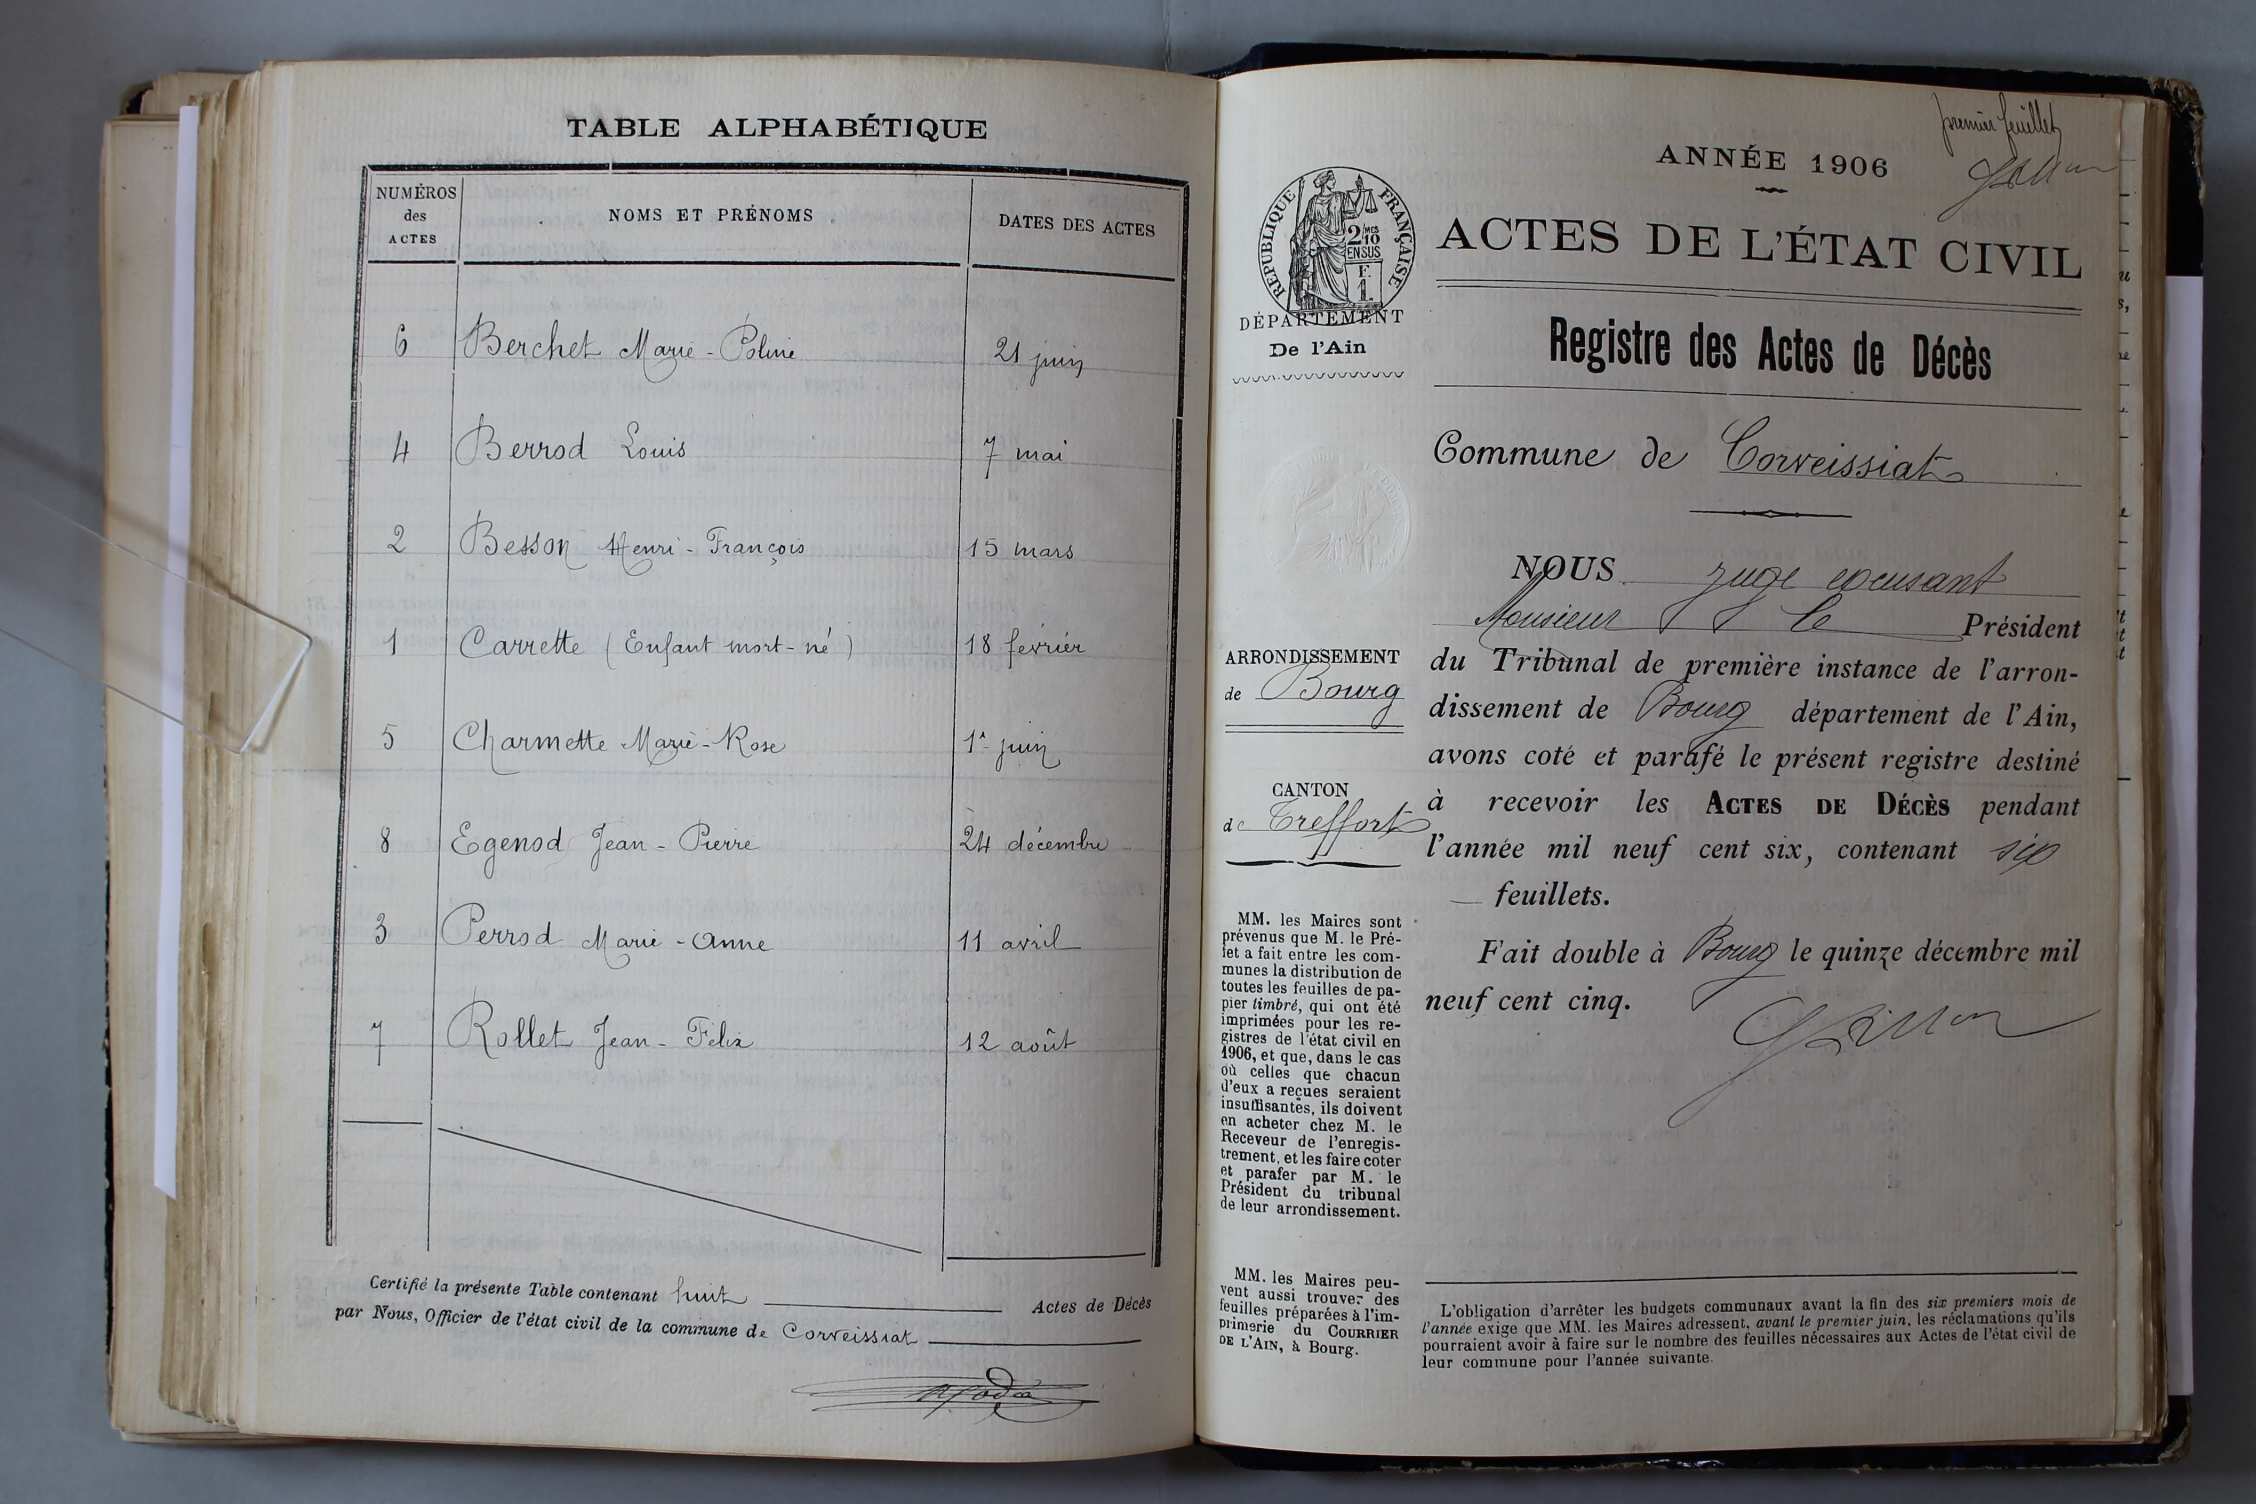 TABLE ALPHABÉTIQUE
NUMÉROS des ACTES NOMS ET PRÉNOMS DATES DES ACTES
6 Berchet Marie-Poline 21 juin
4 Berrod Louis 7 mai
2 Besson Henri-François 15 mars
1 Carrette (Enfant mort-né) 18 février
5 Charmette Marie-Rose 1er juin
8 Egenod Jean-Pierre 24 décembre
3 Perrod Marie-Anne 11 avril
7 Rollet Jean-Félix 12 août
Certifié la présente Table contenant huit Actes de Décès
par Nous, Officier de l'état civil de la commune de Corveissiat
premier feuillet
ANNÉE 1906
RÉPUBLIQUE FRANÇAISE
2/10 MES
EN SUS
F.
1.
ACTES DE L'ÉTAT CIVIL
DÉPARTEMENT
De l'Ain
Registre des Actes de Décès
Commune de Corveissiat
NOUS juge excusant
Monsieur le Président
du Tribunal de première instance de l'arron-
dissement de Bourg département de l'Ain,
avons coté et parafé le présent registre destiné
à recevoir les ACTES DE DÉCÈS pendant
l'année mil neuf cent six, contenant six
feuillets.
Fait double à Bourg le quinze décembre mil
neuf cent cinq.
ARRONDISSEMENT
de Bourg
CANTON
de Treffort
MM. les Maires sont
prévenus que M. le Pré-
fet a fait entre les com-
munes la distribution de
toutes les feuilles de pa-
pier timbré, qui ont été
imprimées pour les re-
gistres de l'état civil en
1906, et que, dans le cas
où celles que chacun
d'eux a reçues seraient
insuffisantes, ils doivent
en acheter chez M. le
Receveur de l'enregis-
trement, et les faire coter
et parafer par M. le
Président du tribunal
de leur arrondissement.
MM. les Maires peu-
vent aussi trouver des
feuilles préparées à l'im-
primerie du COURRIER
DE L'AIN, à Bourg.
L'obligation d'arrêter les budgets communaux avant la fin des six premiers mois de
l'année exige que MM. les Maires adressent, avant le premier juin, les réclamations qu'ils
pourraient avoir à faire sur le nombre des feuilles nécessaires aux Actes de l'état civil de
leur commune pour l'année suivante.